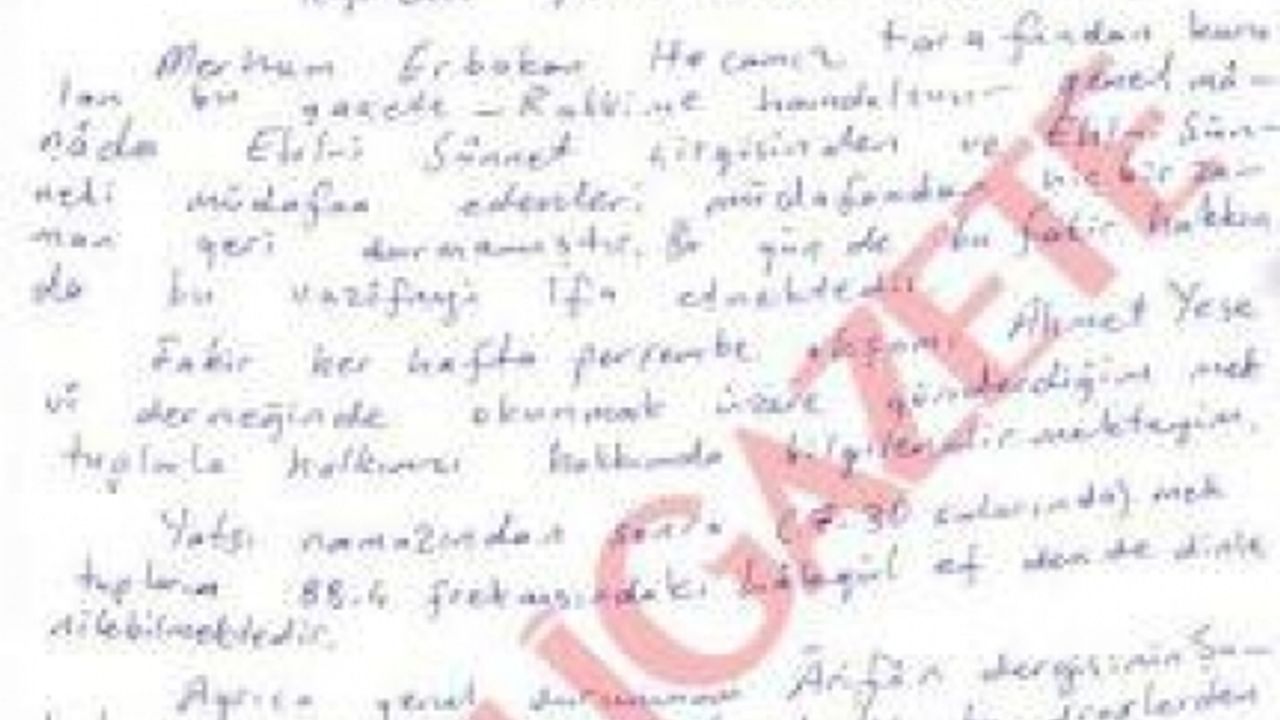 Merhum Erbakan Hocamız tarafından kuru-
lan bu gazete - Rabbime hamdolsun - genel mâ-
nâda Ehl-i Sünnet çizgisinden ve Ehl-i Sün-
neti müdafaa edenleri müdafaadan hiç bir za-
man geri durmamıştır. Bu gün de bu fakir hakkın
da bu vazifeyi îfa etmektedir.
Fakir her hafta perşembe akşamı Ahmet Yese
vî derneğinde okunmak üzere gönderdiğim mek
tuplarla halkımızı hakkımda bilgilendirmekteyim.
Yatsı namazından sonra sularında) mek
tuplarım 88.4 frekansındaki Lâlegül ef emden de dinle
nilebilmektedir.
Ayrıca genel durumumu Ârifân dergisinin
GAZETE